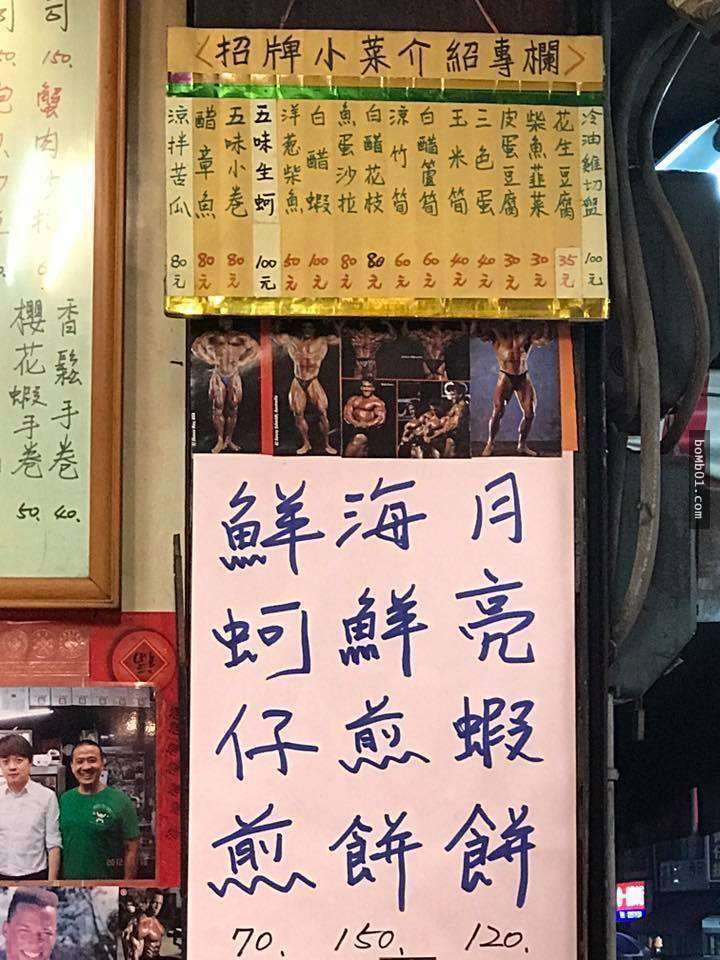 <招牌小菜介紹專欄>
冷油雞切盤 100元
花生豆腐 35元
柴魚韮菜 30元
皮蛋豆腐 30元
三色蛋 40元
玉米筍 40元
白醋蘆筍 60元
涼竹筍 60元
白醋花枝 80元
魚蛋沙拉 80元
白醋蝦 100元
洋葱柴魚 50元
五味生蚵 100元
五味小卷 80元
醋章魚 80元
涼拌苦瓜 80元
司 150.
蟹肉
香鬆手卷 40.
櫻花蝦手卷 50.
月亮蝦餅 120.
海鮮煎餅 150.
鮮蚵仔煎 70.
boMb01.com